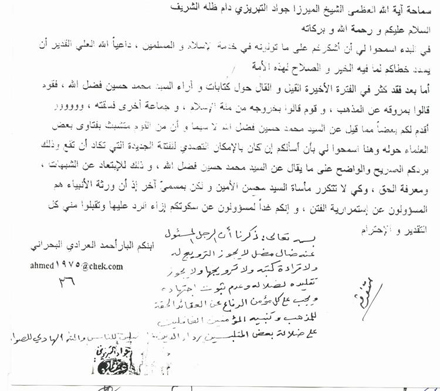 سماحة آية الله العظمى الشيخ الميرزا جواد التبريزي دام ظله الشريف
السلام عليكم و رحمة الله و بركاته
في البدء اسمحوا لي أن أشكركم على ما توفرونه في خدمة الإسلام و المسلمين ، داعياً الله العلي القدير أن
يسدد خطاكم لما فيه الخير و الصلاح لهذه الأمة
أما بعد فقد كثر في الفترة الأخيرة القيل و القال حول كتابات و آراء السيد محمد حسين فضل الله ، فقوم
قالوا بمروقه عن المذهب ، و قوم قالوا بخروجه من ملة الإسلام ، و جماعة أخرى فسقته ، وووووو
أقدم لكم بعضاً مما قيل عن السيد محمد حسين فضل الله لا سيما و أن من القوم متشبث بفتاوى بعض
العلماء حوله وهنا اسمحوا لي بأن أسألكم إن كان بالإمكان التصدي للفتنة الجديدة التي تكاد أن تقع وذلك
بردكم الصريح والواضح على ما يقال عن السيد محمد حسين فضل الله ، و ذلك للإبتعاد عن الشبهات ،
ومعرفة الحق ، وكي لا تتكرر مأساة السيد محسن الأمين و لكن بمسمى آخر إذ أن ورثة الأنبياء هم
المسؤولون عن إستمرارية الفتن ، و إنكم غداً لمسؤولون عن سكوتكم إزاء الرد عليها وتقبلوا مني كل
التقدير و الإحترام
ابنكم البار أحمد العرادي البحراني
ahmed١٩٧٥@chek.com
٢٦
بسمه تعالى: ذكرنا أن الرجل المسئول
عنه ضال مضل لا يجوز الترويج له
ولا قراءة كتبه ولا ترويجها ولا يجوز
تقليده لضلاله وعدم ثبوت اجتهاده
ويجب على كل مؤمن الدفاع عن العقائد الحقة
للمذهب و تنبيه المؤمنين الغافلين
على ضلالة بعض المتلبسين والله الهادي للصواب